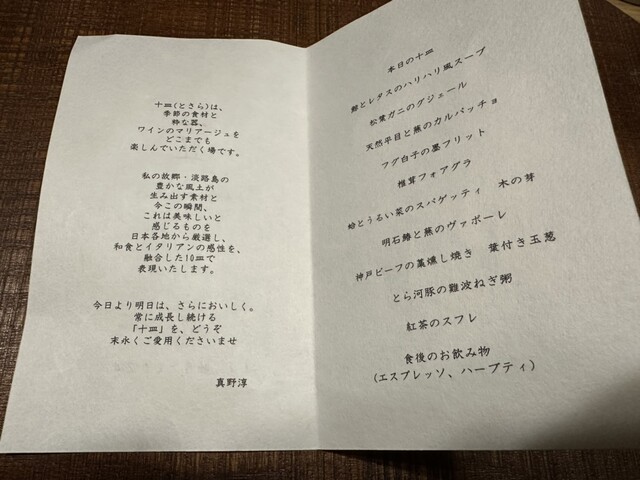 十皿(とさら)は、
季節の食材と
粋な器、
ワインのマリアージュを
どこまでも
楽しんでいただく場です。
私の故郷・淡路島の
豊かな風土が
生み出す素材と
今この瞬間、
これは美味しいと
感じるものを
日本各地から厳選し、
和食とイタリアンの感性を、
融合した10皿で
表現いたします。
今日より明日は、さらにおいしく。
常に成長し続ける
「十皿」を、どうぞ
末永くご愛用くださいませ
真野淳
本日の十皿
とレタスのハリハリ風スープ
松葉ガニのグジェール
天然平目と蕪のカルパッチョ
フグ白子の墨フリット
椎茸フォアグラ
蛤とうるい菜のスパゲッティ 木の芽
明石鰆と蕪のヴァポーレ
神戸ビーフの藁燻し焼き 葉付き玉葱
とら河豚の難波ねぎ粥
紅茶のスフレ
食後のお飲み物
(エスプレッソ、ハーブティ)